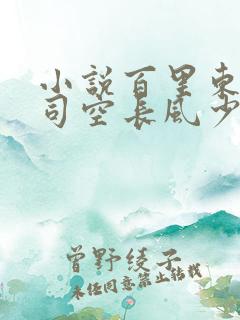 小說百里東
司空長風少
曾野綾子
未经同意禁止转载